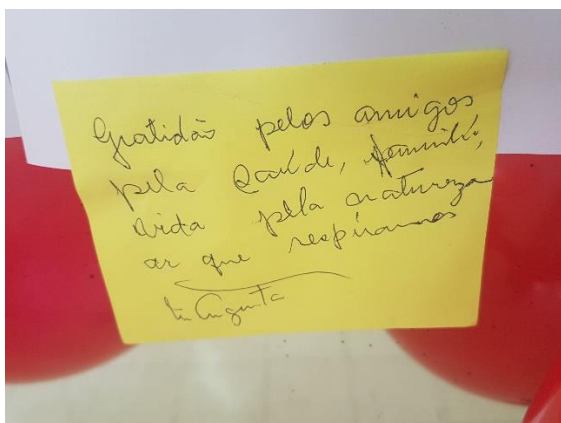 Gratidão pelos amigos
pela Saúde, família,
vida pela natureza
ar que respiramos
Augusta